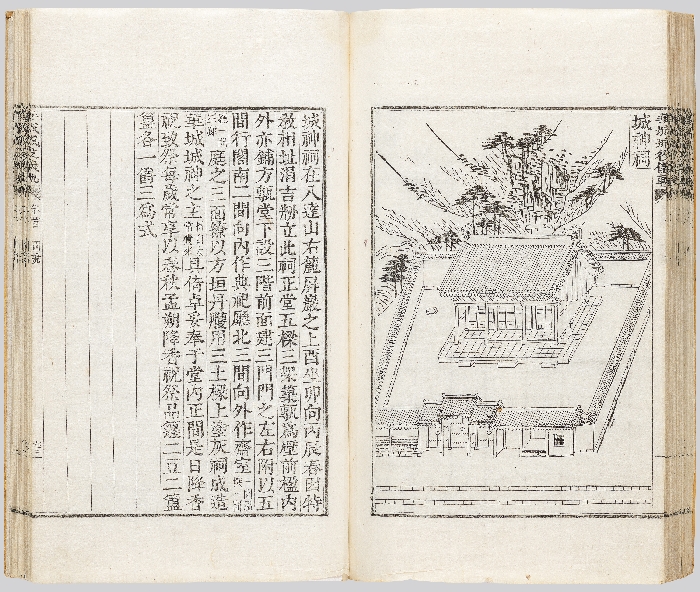 城神祠
城神祠在八達山右麓屏巖之上酉坐卯向丙辰春因特
敎相址涓吉剙立此祠正堂五樑三架築甎爲壁前楹內
外亦鋪方甎堂下設三階前面建三門門之左右附以五
間行閣南二間向內作典祀廳北三間向外作齋室
庭之三面繚以方垣丹雘用三土樑上塗灰祠成造
華城城神之主 具倚卓妥奉于堂內正間是日降香
祝致祭每歲常享以春秋孟朔降香祝祭品籩二豆二簠
簋各一爵三爲式